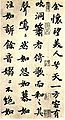 余懷望美人兮天一方客有
吹洞簫者倚歌而和之其
聲嗚嗚然如怨如慕如
泣如訴餘音嫋嫋不絕如